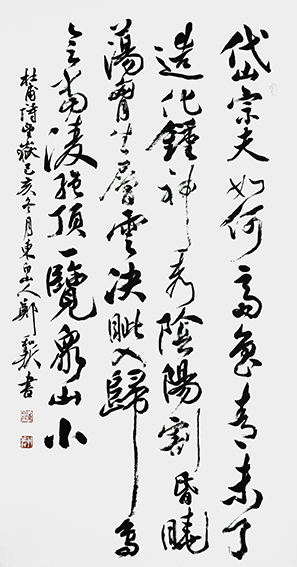 岱宗夫如何齊魯青未了
造化鍾神秀陰陽割昏曉
蕩胸生層雲決眦入歸鳥
會當凌絕頂一覽眾山小
杜甫詩望嶽己亥冬月東人鄭書